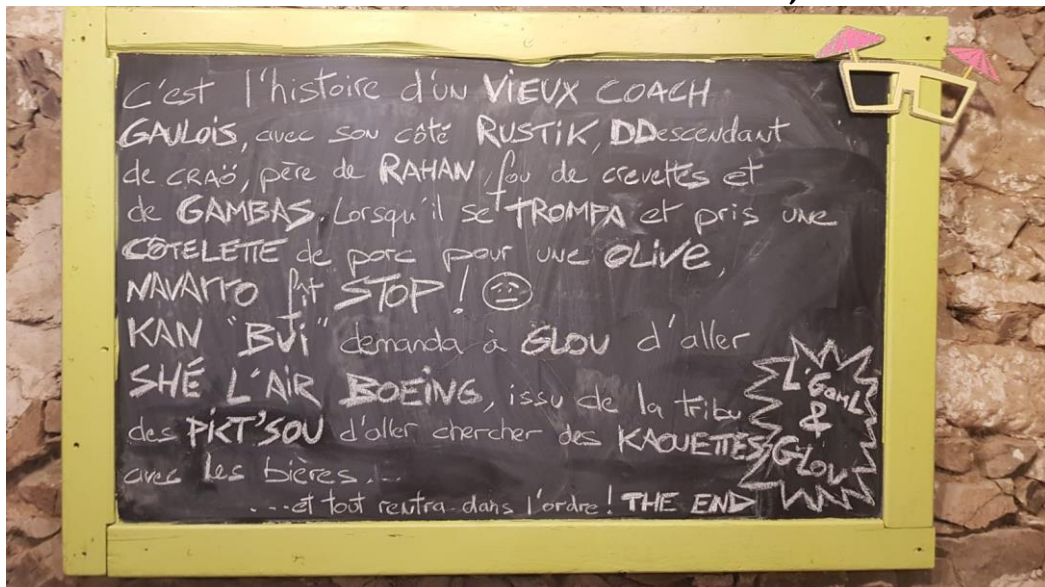 C'est l'histoire d'un VIEUX COACH
GAULOIS, avec son côté RUSTIK, DDescendant
de CRAÖ, père de RAHAN, fou de crevettes et
de GAMBAS. Lorsqu'il se TROMPA et pris une
CÔTELETTE de porc pour une OLIVE,
NAVARRO fit STOP !
KAN "BUi" demanda à GLOU d'aller
SHÉ L'AIR BOEING, issu de la tribu
des PIKT'SOU d'aller chercher des KAOUETTES
avec les bières...
...et tout rentra dans l'ordre ! THE END
L'GamL
&
GLOU